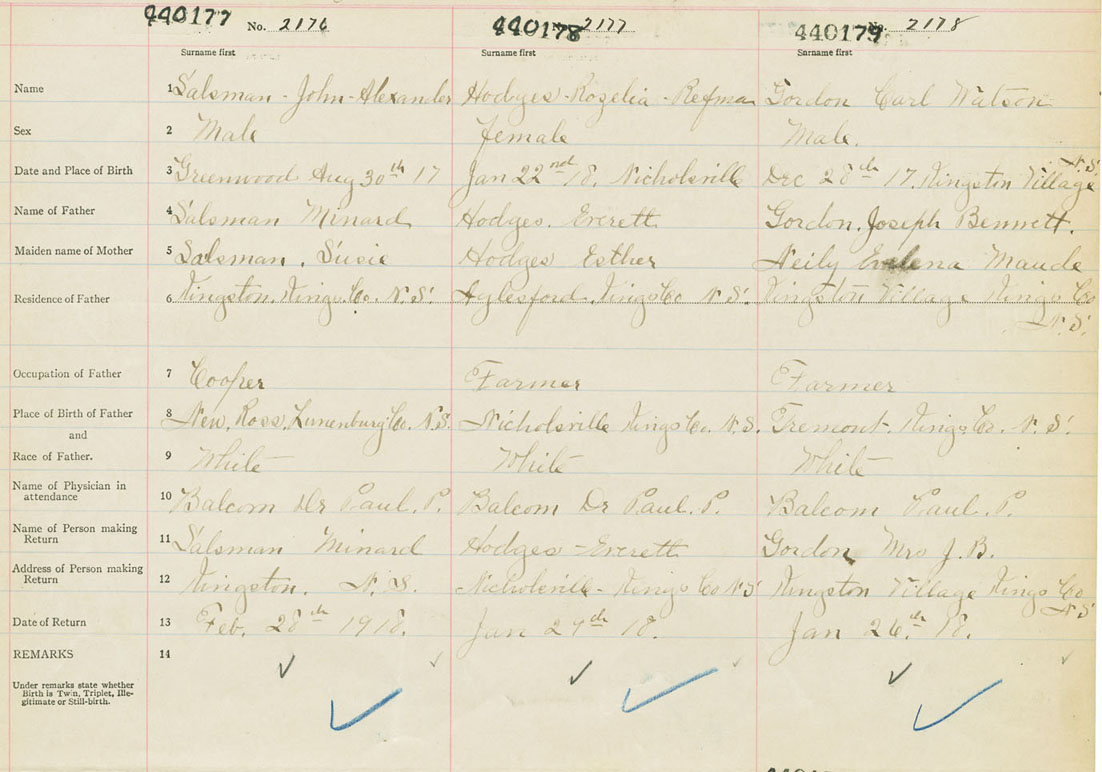 440177 No. 2176 440178 No. 2177 440179 No. 2178
Surname first Surname first Surname first
Name 1 Salsman - John - Alexander Hodges - Rozelia - Refina Gordon Carl Watson
Sex 2 Male Female Male.
N.S.
Date and Place of Birth 3 Greenwood Aug 30th 17 Jan 22nd 18. Nicholsville Dec 28th 17. Kingston Village
Name of Father 4 Salsman Minard Hodges. Everett Gordon, Joseph Bennett.
Maiden name of Mother 5 Salsman. Susie Hodges Esther Neily Evelena Maude
Residence of Father 6 Kingston, Kings. Co. N.S. Aylesford, Kings Co N.S. Kingston Village Kings Co
N.S.
Occupation of Father 7 Cooper Farmer Farmer
Place of Birth of Father 8 New, Ross, Lunenburg Co. N.S. Nicholsville Kings Co. N.S. Tremont. Kings Co. N.S.
and
Race of Father. 9 White White White
Name of Physician in
attendance 10 Balcom Dr Paul. P. Balcom Dr Paul. P. Balcom Paul. P.
Name of Person making
Return 11 Salsman Minard Hodges - Everett Gordon Mrs J. B.
Address of Person making
Return 12 Kingston. N.S. Nicholsville - Kings Co N.S Kingston Village Kings Co
N.S
Date of Return 13 Feb. 28th 1918. Jan 29th 18. Jan 26th 18.
REMARKS 14
Under remarks state whether
Birth is Twin, Triplet, Ille-
gitimate or Still-birth.